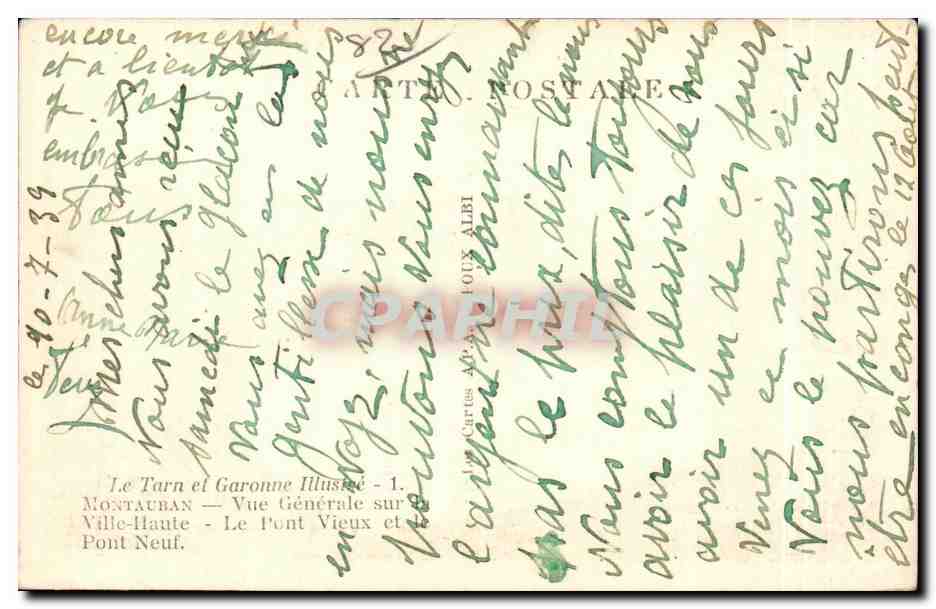 le 10-7-39
mes chers amis
Nous avons reçu
samedi le glacon
Vous avez eu la
gentillesse de nous
envoyé, nous nous
Vous envoy
l'argent ne connaissant
pas le prix, dite le nous
Nous comptons toujours
avoir le plaisir de vous
avoir un de ces jours
Venez ce mois ci si
Vous le pouvez car
nous partirons peut-
etre en congé le 12 Aout.
encore merci
et a bientot
embrasse
Tous
Anne Marie
CARTE POSTALE
82
Les Cartes APA POUX ALBI
CPAPHIL
Le Tarn et Garonne Illustré - 1.
MONTAUBAN — Vue Générale sur la
Ville-Haute - Le Pont Vieux et le
Pont Neuf.